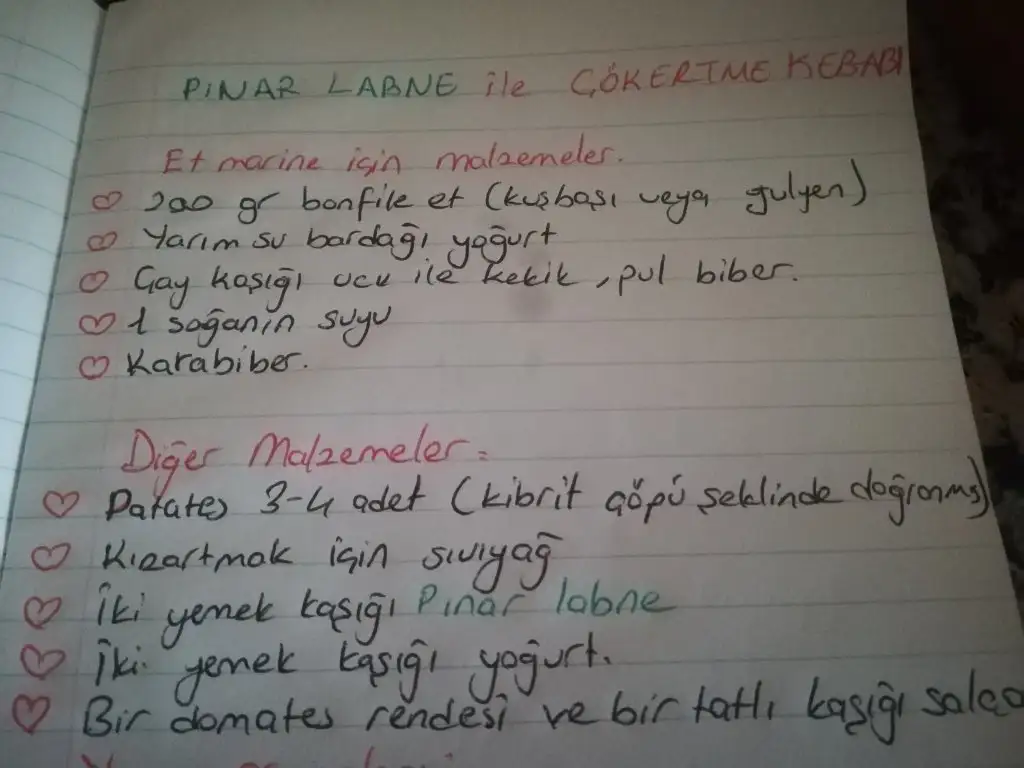 PINAR LABNE ile ÇÖKERTME KEBABI
Et marine için malzemeler.
200 gr bonfile et (kuşbaşı veya julyen)
Yarım su bardağı yoğurt
Çay kaşığı ucu ile kekik, pul biber.
1 soğanın suyu
Karabiber.
Diğer Malzemeler:
Patates 3-4 adet (kibrit çöpü şeklinde doğranmış)
Kızartmak için sıvıyağ
İki yemek kaşığı Pınar labne
İki yemek kaşığı yoğurt.
Bir domates rendesi ve bir tatlı kaşığı salça